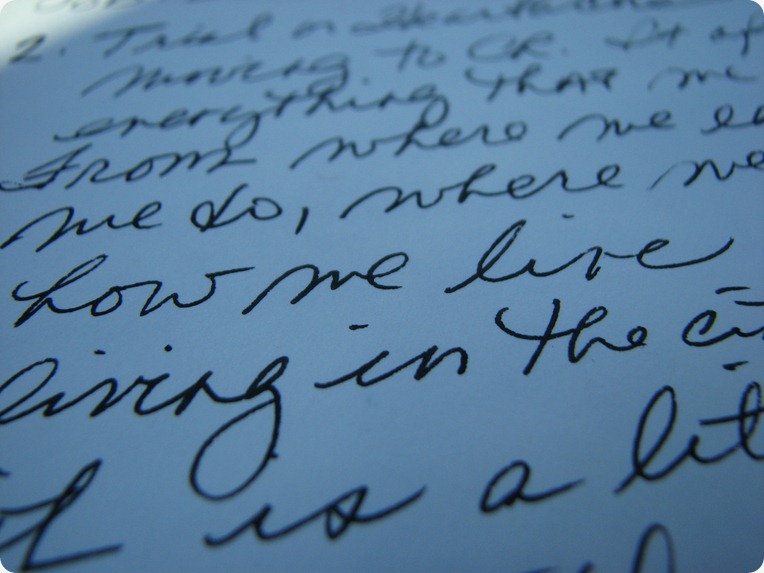 2. Trial or
moving to CR. It af
everything that we
From where we ea
we do, where we
how we live
living in the cit
it is a lit